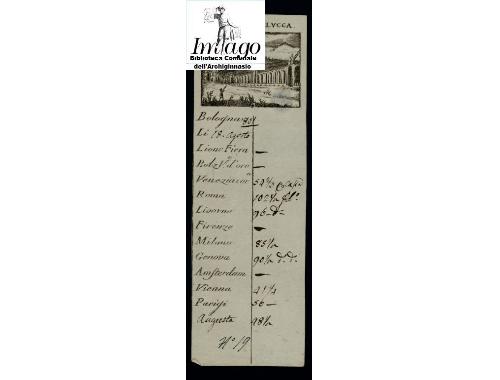 Imago
Biblioteca Comunale
dell'Archiginnasio
LVCCA.
Bologna
Li 18. Agosto
Lione Fiera —
Bolz.
Venezia
Roma 102½
Livorno 96
Firenze —
Milano 85½
Genova 90½
Amsterdam —
Vienna 41¼
Parigi 56 —
Augusta 48½
N° 19